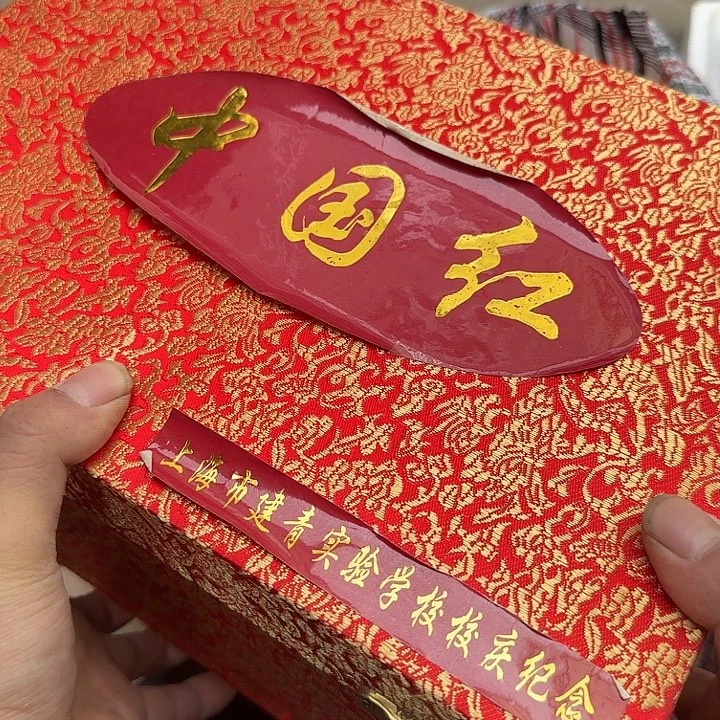 中国红
上海市建青实验学校校庆纪念